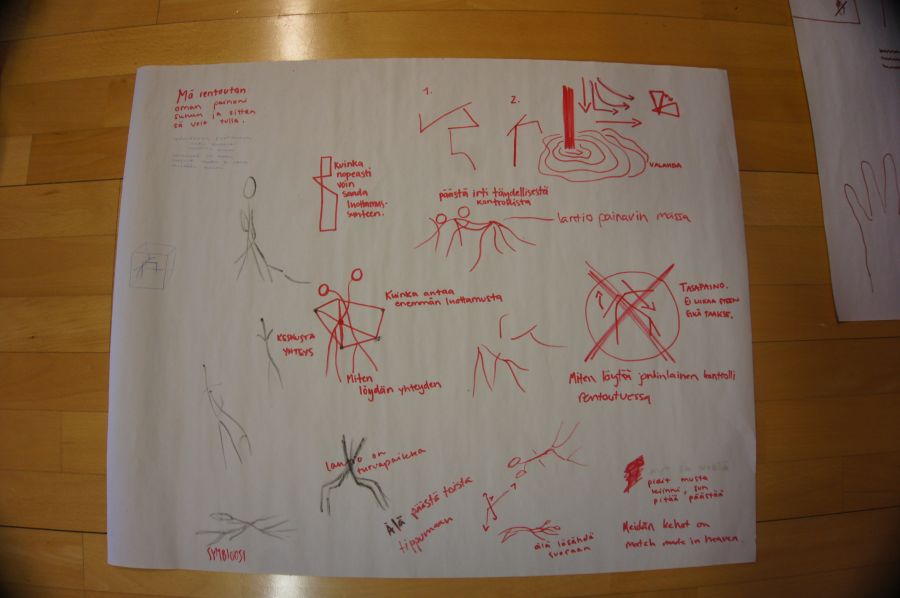 Mä rentoutan
oman painoni
suhun ja sitten
sä voit tulla.
Kuinka
nopeasti
voin
saada
luottamus-
suhteen.
1.
2.
VALAHDA
päästä irti täydellisestä
kontrollista
lantio painavin massa
Kuinka antaa
enemmän luottamusta
KESKUSTA
YHTEYS
Miten
löydän yhteyden
TASAPAINO.
EI LIIKAA ETEEN
EIKÄ TAAKSE.
Miten löytää jonkinlainen kontrolli
rentoutuessa
lantio on
turvapaikka
Älä päästä toista
tippumaan
SYMBIOOSI
älä läsähdä
suoraan
pidit musta
kiinni, sun
pitää päästää
Meidän kehot on
match made in heaven.